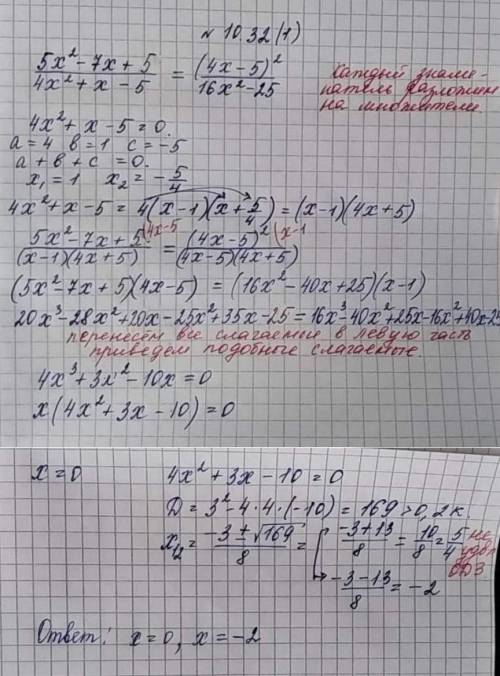 № 10.32(1)
(5x² - 7x + 5)/(4x² + x - 5) = (4x - 5)²/(16x² - 25)
Каждый знаме-
натель разложим
на множители.
4x² + x - 5 = 0.
a = 4 в = 1 c = -5
a + в + c = 0.
x₁ = 1 x₂ = -5/4
4x² + x - 5 = 4(x - 1)(x + 5/4) = (x - 1)(4x + 5)
(5x² - 7x + 5)/((x - 1)(4x + 5)) (4x-5 = (4x - 5)²/((4x - 5)(4x + 5)) (x-1
(5x² - 7x + 5)(4x - 5) = (16x² - 40x + 25)(x - 1)
20x³ - 28x² + 20x - 25x² + 35x - 25 = 16x³ - 40x² + 25x - 16x² + 40x - 25
перенесём все слагаемые в левую часть
приведем подобные слагаемые.
4x³ + 3x² - 10x = 0
x(4x² + 3x - 10) = 0
x = 0 4x² + 3x - 10 = 0
D = 3² - 4·4·(-10) = 169 > 0, 2 к.
x₁,₂ = (-3 ± √169)/8 = (-3 + 13)/8 = 10/8 = 5/4 не удвл ОДЗ
(-3 - 13)/8 = -2
Ответ: x = 0, x = -2